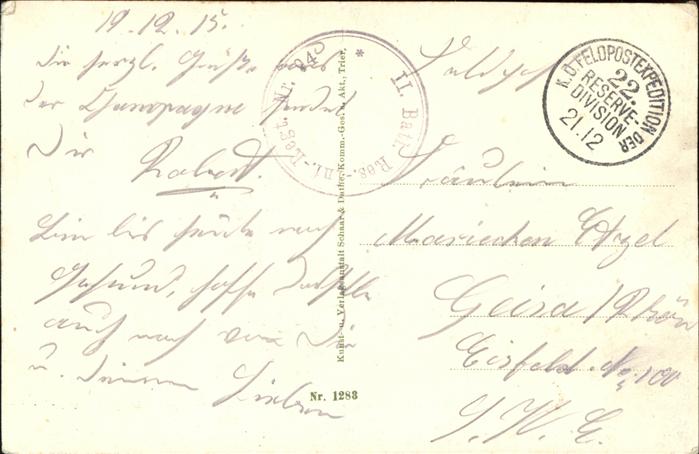 19.12.15.
Die herzl. Grüße aus
der Champagne sendet
Dir Robert.
Bin bis heute noch
gesund, hoffe dasselbe
auch noch von Dir
u. Deinen Lieben
Nr. 1283
Kunst- u. Verlagsanstalt Schaar & Dathe, Komm.-Ges. a. Akt., Trier.
II. Batl. Res.-Inf.-Regt. Nr.
*
K.D.FELDPOSTEXPEDITION DER
22.
RESERVE-
DIVISION
21.12
Fräulein
Mariechen
Geisa / Rhön
No. 100
S. W. E.